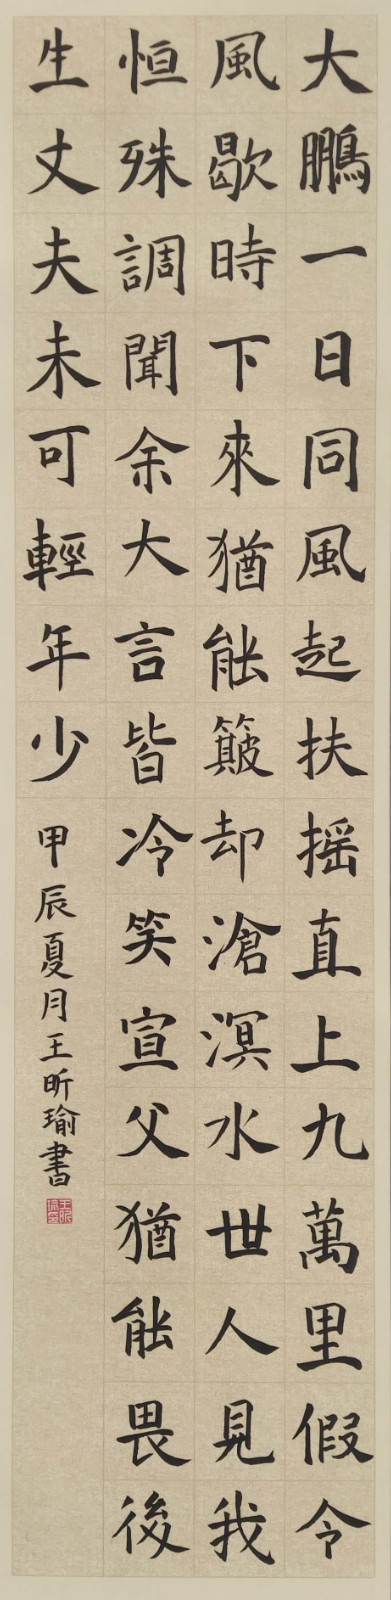 大鵬一日同風起扶摇直上九萬里假令
風歇時下來猶能簸却滄溟水世人見我
恒殊調聞余大言皆冷笑宣父猶能畏後
生丈夫未可輕年少
甲辰夏月王昕瑜書